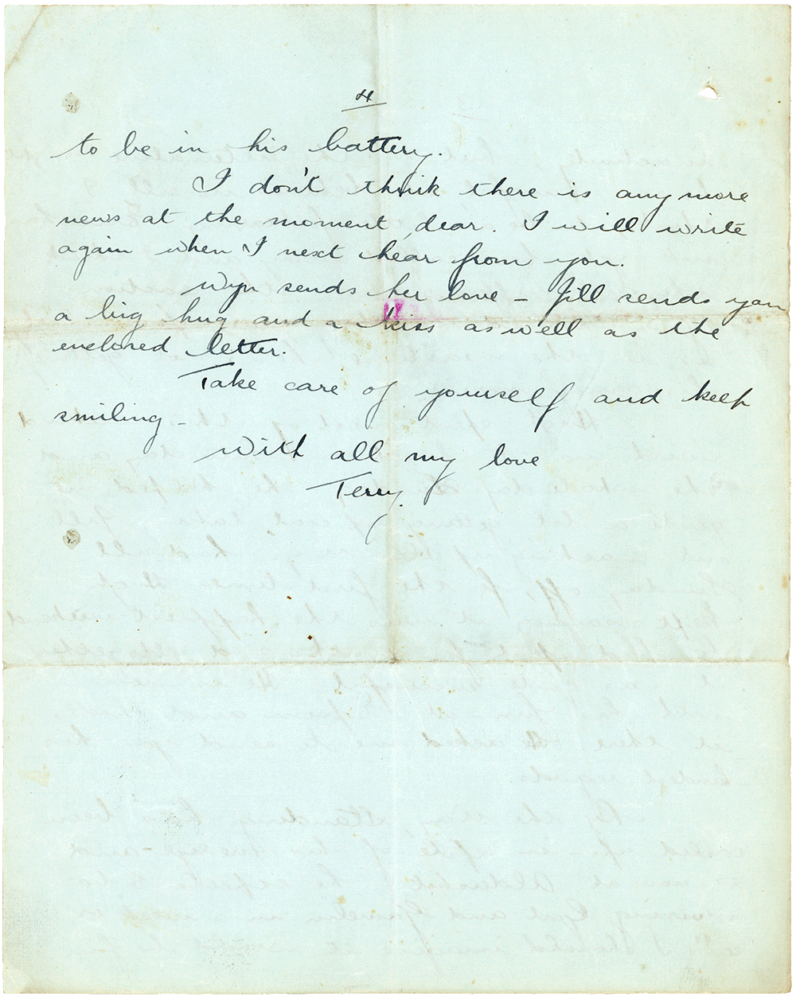 4
to be in his battery.
I don't think there is any more
news at the moment dear. I will write
again when I next hear from you.
Wyn sends her love – Jill sends you
a big hug and a kiss as well as the
enclosed letter.
Take care of yourself and keep
smiling –
With all my love
Terry.